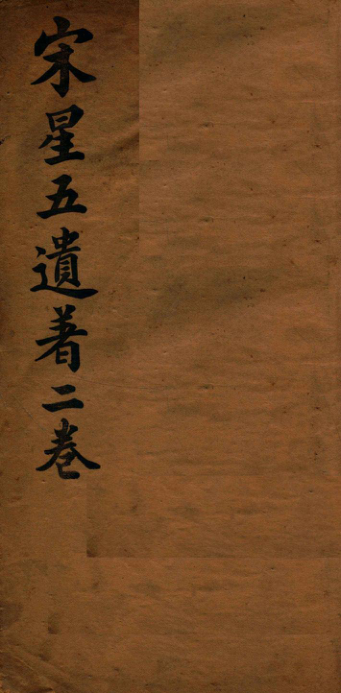 宋星五遺著二卷